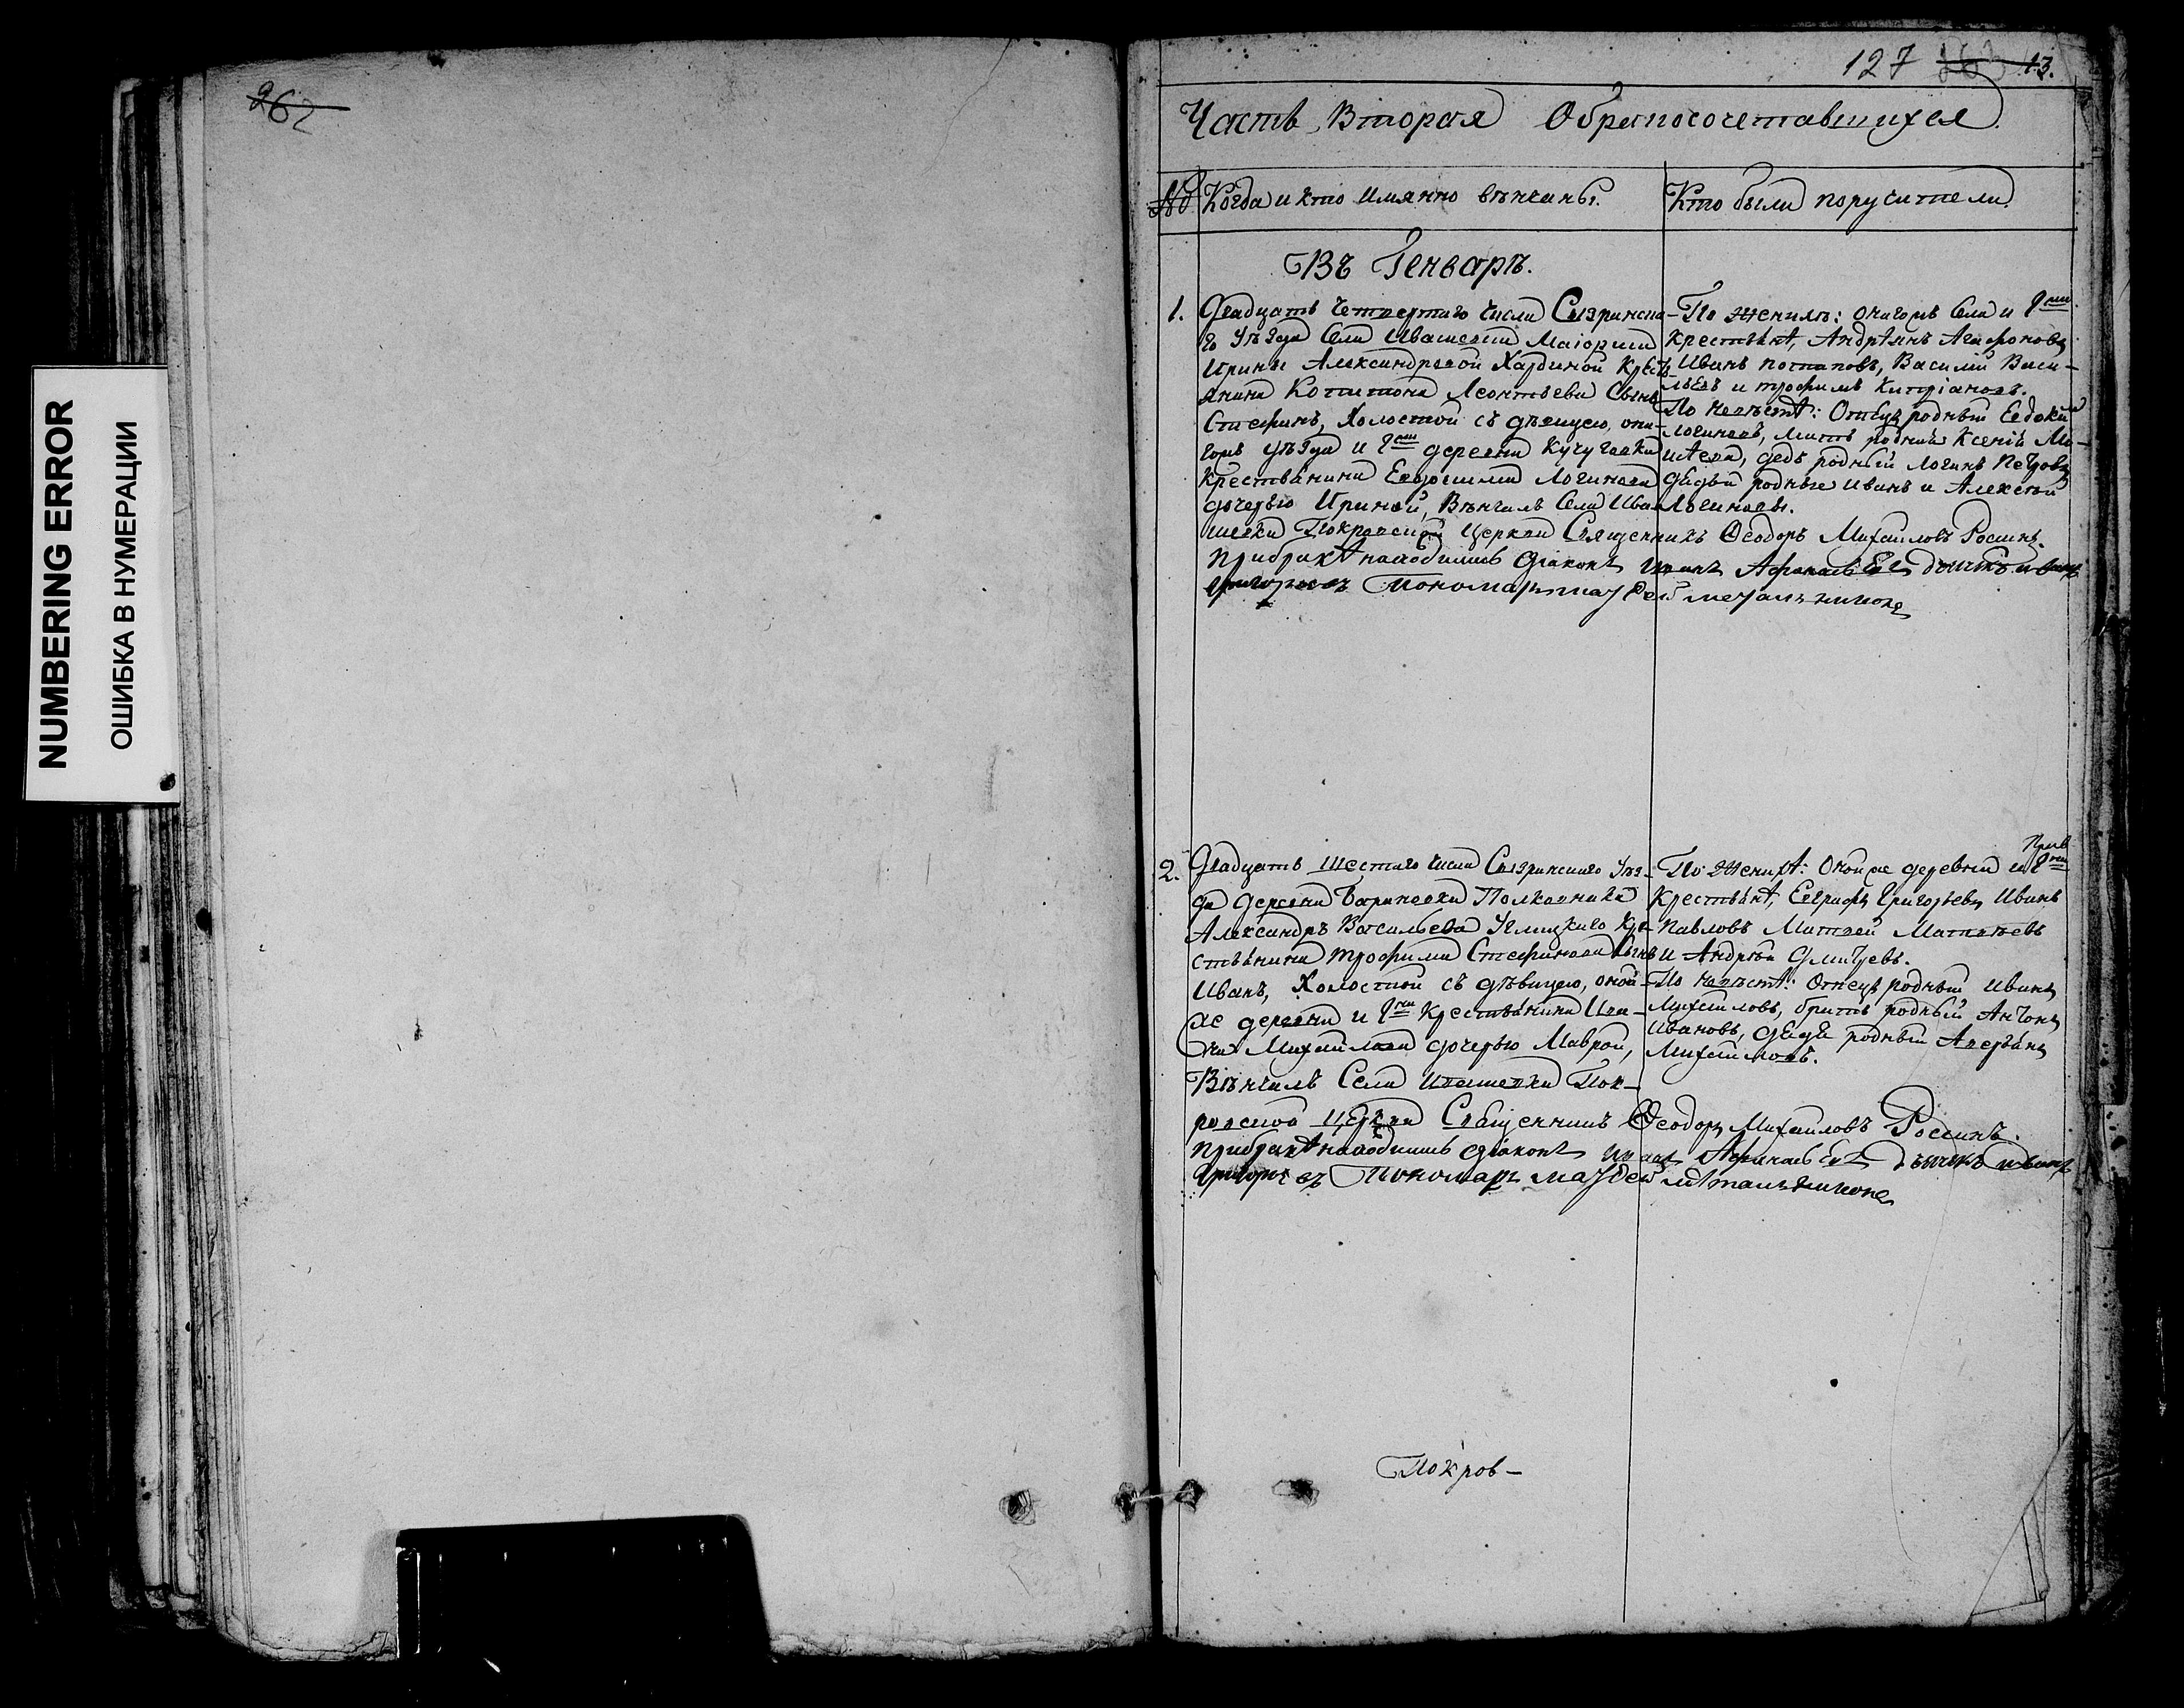 NUMBERING ERROR
ОШИБКА В НУМЕРАЦИИ
262
127 263 13.
Часть Вторая О бракосочетавшихся.
№ Когда и кто имянно венчаны. Кто были поручители
Въ Генварѣ.
1. Двадцать четвертаго числа Сызранска-
го уѣзда Села Ивашевки Маіорши
Ирины Александровой Хардиной крестья-
янина Капитона Леонтьева Сынъ
Стефанъ, Холостой съ дѣвицею, она-
гожъ уѣзда и Гжи деревни Кучуговки
крестьянина Евдокима Логинова
дочерью Ириной, Вѣнчалъ Села Ива-
шевки Покровской Церкви Священникъ Ѳеодоръ Михайловъ Россинъ.
При бракѣ находились діаконъ Иванъ Афанасьевъ дьячкъ Иванъ
Григорьевъ Пономарь
По женихѣ: онагожъ Села и Гжи
крестьянѣ, Андрѣянъ Агафоновъ
Иванъ Потаповъ, Василій Васи-
льевъ и трофимъ Кипріановъ.
По невѣстѣ: Отецъ родный Евдоким
Логиновъ, мать родная Ксенія Ма-
твева, дедъ родный Логинъ Петровъ
дядья родные Иванъ и Алексѣй
Логиновы.
2. Двадцать шестаго числа Сызранскаго уѣз-
да деревни Бариновки Полковника
Александръ Васильева Углицкаго кре-
стьянина трофима Стефанова Сынъ
Иванъ, Холостой съ дѣвицею, оной-
же деревни и Гжи крестьянина Ива-
на Михайлова дочерью Маврой,
Вѣнчалъ Села Ивашевки Пок-
ровской Церкви Священникъ Ѳеодоръ Михайловъ Россинъ.
При бракѣ находились діаконъ Иванъ Афанасьевъ дьячкъ Иванъ
Григорьевъ Пономарь
По женихѣ: Онойже деревни и Гжи
крестьянѣ, Евграфъ Григорьевъ Иванъ
Павловъ Матвей Матвѣевъ
и Андрѣй Дмитревъ.
По невѣстѣ: Отецъ родный Иванъ
Михайловъ, братъ родный Антонъ
Ивановъ, дядя родный Аверьянъ
Михайловъ.
Покров-